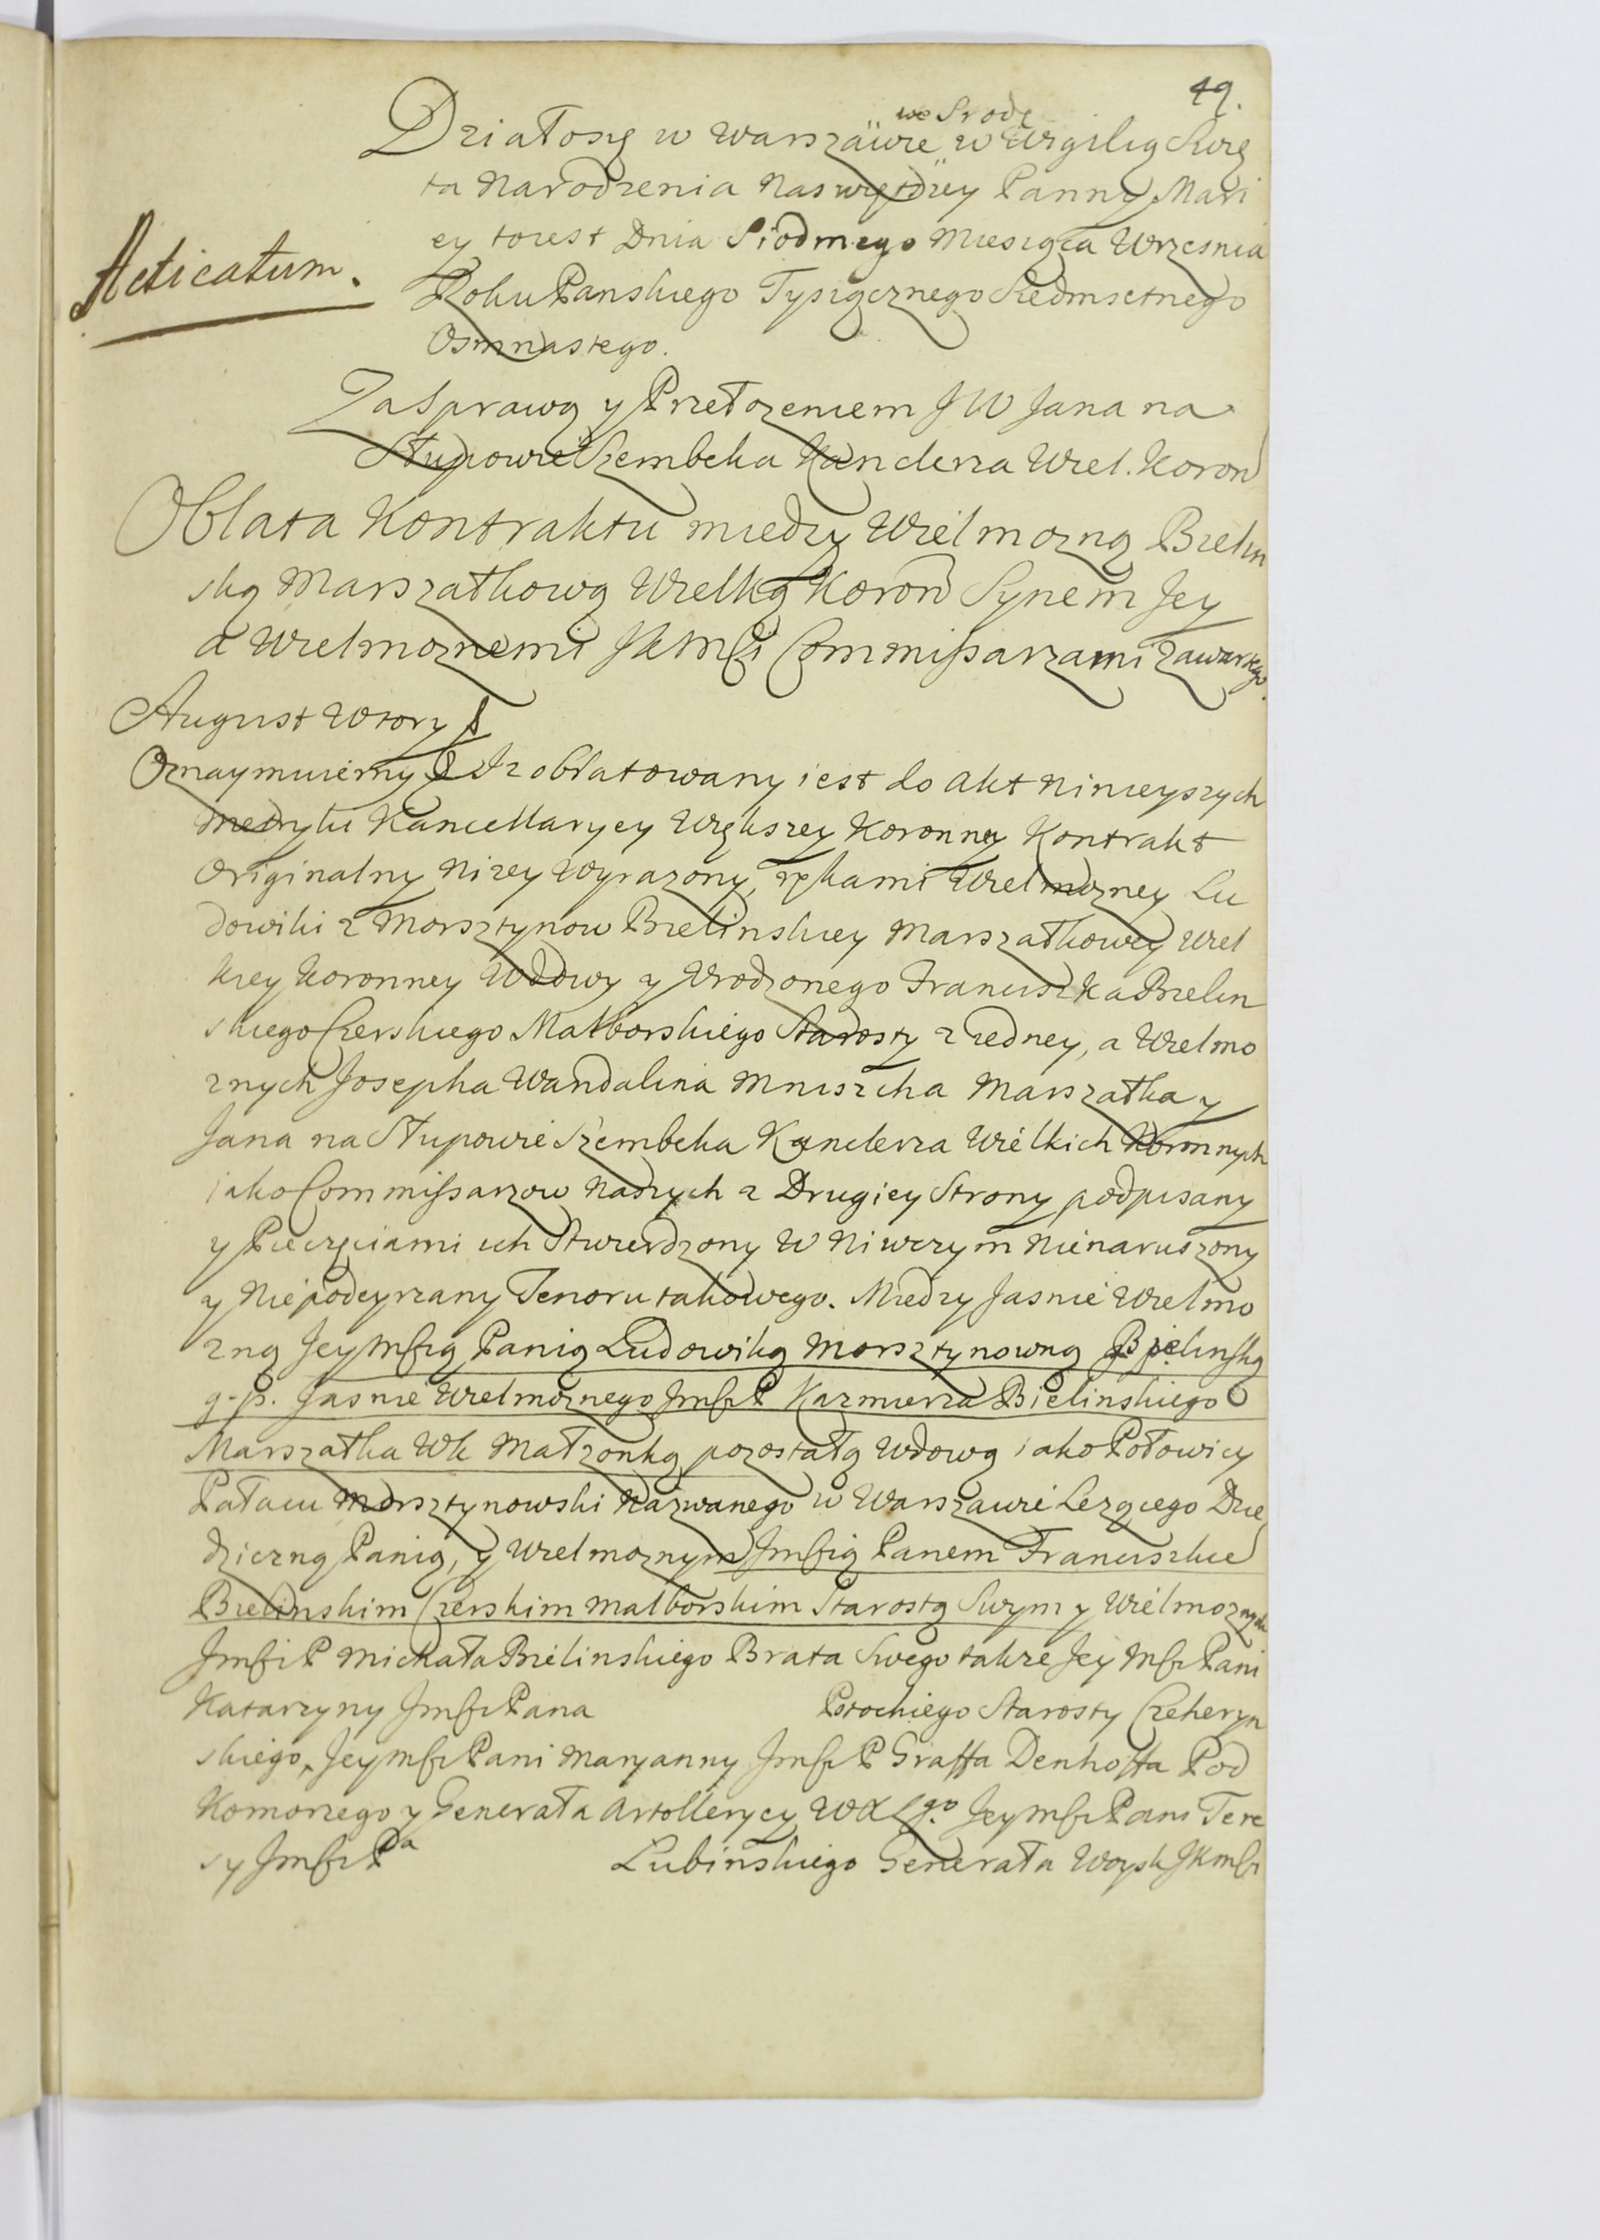 49.
we Srodę
Działosię w Warszawie w Wigilią Swię
ta Narodzenia Naswiętszey Panny Mari
ey toiest Dnia Siodmego Miesiąca Wrzesnia
Acticatum.
Roku Panskiego Tysiącznego Siedmsetnego
Osmnastego.
Zasprawą y Przełozeniem JW Jana na
Słupowie Szembeka Kanclerza Wiel. Koron
Oblata Kontraktu między Wielmozną Bielin
ską Marszałkową Wielką Koron Synem Jey
a Wielmoznemi JKMsci Commissarzami zawartego.
August Wtory &
Oznaymuiemy & Iz oblatowany iest do Akt Ninieyszych
Metryki Kancellaryey Większey Koronney Kontrakt
Originalny Nizey Wyrazony, rękami Wielmozney Lu
dowiki z Morsztynow Bielinskiey Marszałkowey Wiel
kiey Koronney Wdowy y Urodzonego Franciszka Bielin
skiego Czerskiego Malborskiego Starosty z iedney, a Wielmo
znych Josepha Wandalina Mniszcha Marszałka y
Jana na Słupowie Szembeka Kanclerza Wielkich Koronnych
iako Commissarzow Naszych z Drugiey Strony podpisany
y Pieczęciami ich Stwierdzony W Niwczym Nienaruszony
y Niepodeyrzany Tenoru takowego. Miedzy Jasnie Wielmo
zną JeyMscią Panią Ludowiką Morsztynowną Bielinską
g-p. Jasnie Wielmoznego JmsciP Kazmierza Bielinskiego
Marszałka WK Małzonką pozostałą Wdową iako Połowicy
Pałacu Morsztynowski Nazwanego w Warszawie Lezącego Dzie
dziczną Panią, y Wielmoznym Jmscią Panem Franciszkie
Bielinskim Czerskim Malborskim Starostą Swym y Wielmoznych
JmsciP Michała Bielinskiego Brata Swego takze Jey Msci Pani
Katarzyny Jmsci Pana Potockiego Starosty Czeheryn
skiego, Jeymsci Pani Maryanny Jmsci P Graffa Denhoffa Pod
Komorzego y Generała Artolleryey WXLgo. Jeymsci Pani Tere
sy Jmsci Pa Lubinskiego Generała Woysk JKmsci